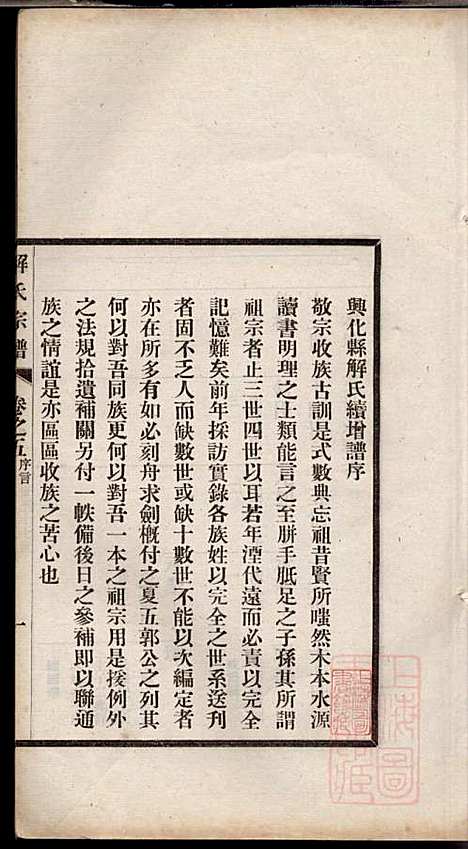 興化縣解氏續增譜序
敬宗收族古訓是式數典忘祖昔賢所嗤然木本水源
讀書明理之士類能言之至胼手胝足之子孫其所謂
祖宗者止三世四世以耳若年湮代遠而必責以完全
記憶難矣前年採訪實錄各族姓以完全之世系送刋
者固不乏人而缺數世或缺十數世不能以次編定者
亦在所多有如必刻舟求劍槪付之夏五郭公之列其
何以對吾同族更何以對吾一本之祖宗用是援例外
之法規拾遺補闕另付一帙備後日之參補即以聯通
族之情誼是亦區區收族之苦心也
解氏宗譜
卷之五
序言
一